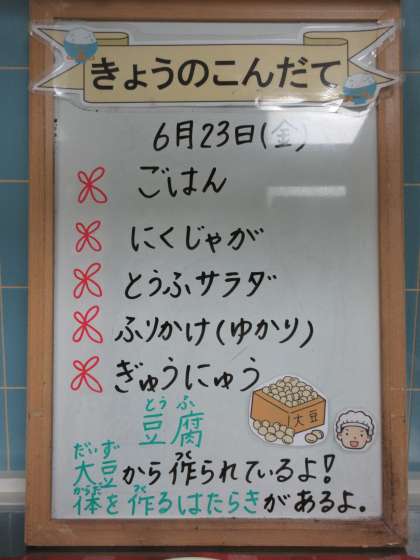 きょうのこんだて
6月23日(金)
ごはん
にくじゃが
とうふサラダ
ふりかけ(ゆかり)
ぎゅうにゅう
大豆
とうふ
豆腐
だいず つく
大豆から作られているよ!
からだ つく
体を作るはたらきがあるよ。